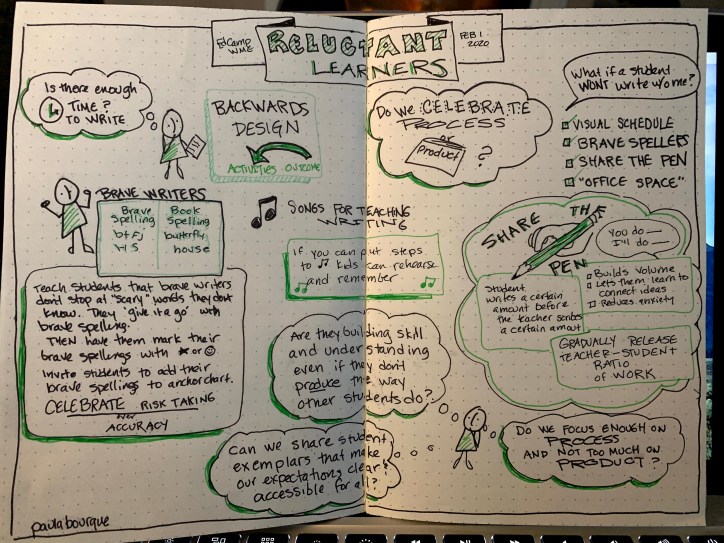 EdCamp
WME
RELUCTANT
LEARNERS
FEB 1
2020
Is there enough
TIME?
TO WRITE
BACKWARDS
DESIGN
ACTIVITIES OUTCOME
Do we CELEBRATE
PROCESS
or
Product
?
What if a student
WON'T write w/o me?
VISUAL SCHEDULE
BRAVE SPELLERS
SHARE THE PEN
"OFFICE SPACE"
BRAVE WRITERS
Brave Spelling
Book Spelling
btfj
butterfly
HS
house
SONGS FOR TEACHING
WRITING
If you can put steps
to ♫ kids can rehearse
and remember
SHARE THE
PEN
You do —
I'll do —
Student
writes a certain
amount before
the teacher scribes
a certain amout
Builds Volume
Lets them learn to
connect ideas
Reduces anxiety
GRADUALLY RELEASE
TEACHER-STUDENT
RATIO
OF WORK
Teach Students that brave writers
don't stop at "scary" words they dont
know. They "give it a go" with
brave spelling.
THEN have them mark their
brave spellings with * or ☺
Invite students to add their
brave spellings to anchorchart.
CELEBRATE RISK TAKING
over
ACCURACY
Are they building skill
and understanding
even if they don't
produce the way
other students do?
Can we share student
exemplars that make
our expectations clear?
accessible for all?
DO WE FOCUS ENOUGH ON
PROCESS
AND NOT TOO MUCH ON
PRODUCT?
paulabourque